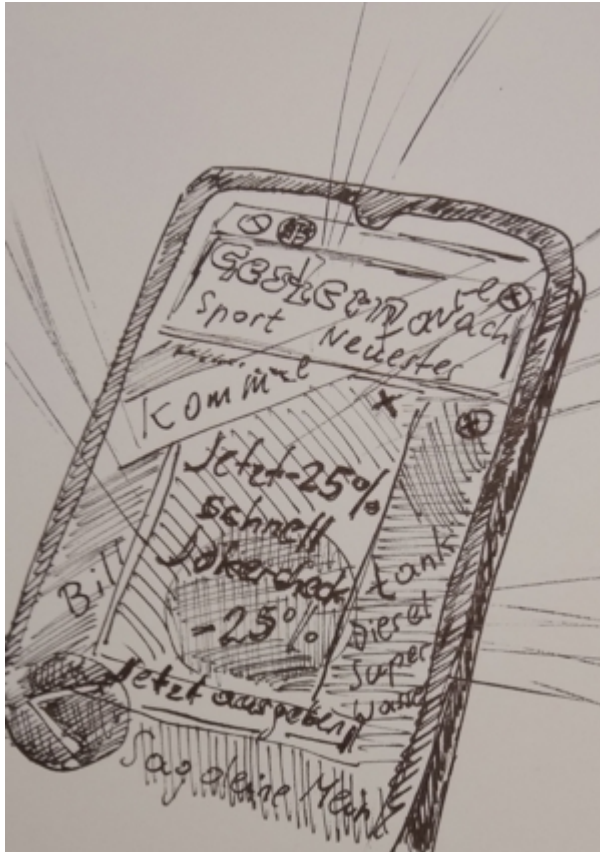 Sport Neuestes
Komm
Jetzt -25%
schnell
Jokercheck
-25%
Bill
tank
Diesel
Super
Jetzt ausgeben!
Sag deine Mein